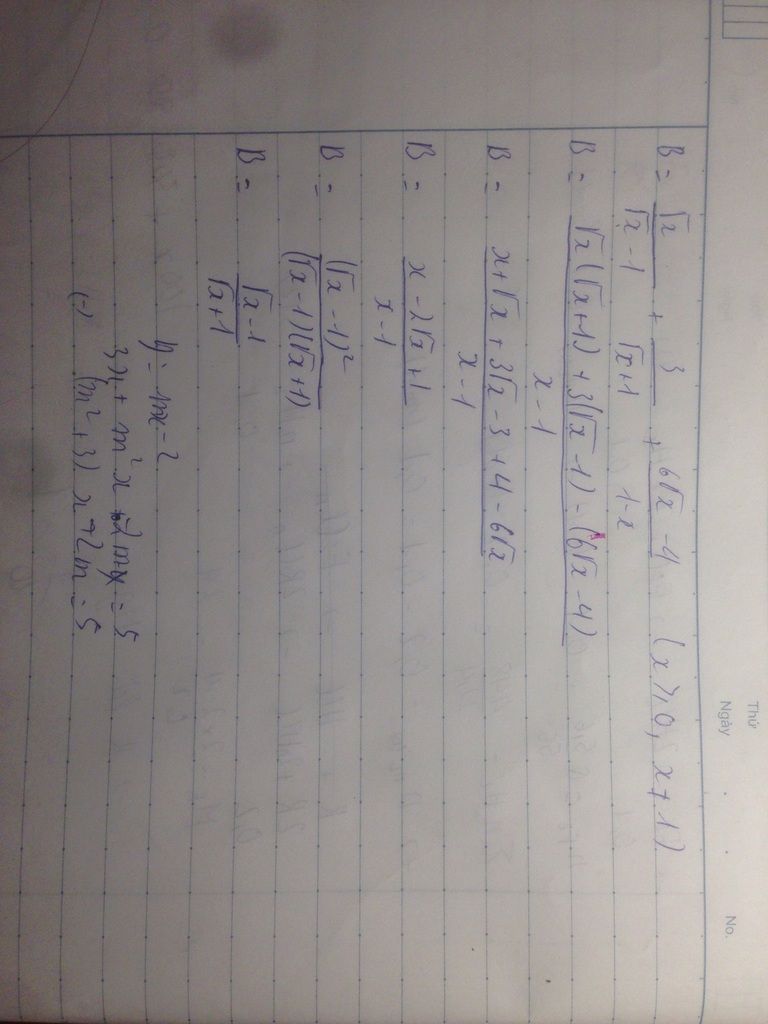 Thứ
Ngày . . No.
B = √x/(√x-1) + 3/(√x+1) + (6√x-4)/(1-x) (x ≥ 0, x ≠ 1)
B = (√x(√x+1) + 3(√x-1) - (6√x-4))/(x-1)
B = (x+√x + 3√x-3 + 4-6√x)/(x-1)
B = (x-2√x+1)/(x-1)
B = (√x-1)²/((√x-1)(√x+1))
B = (√x-1)/(√x+1)
y = mx-2